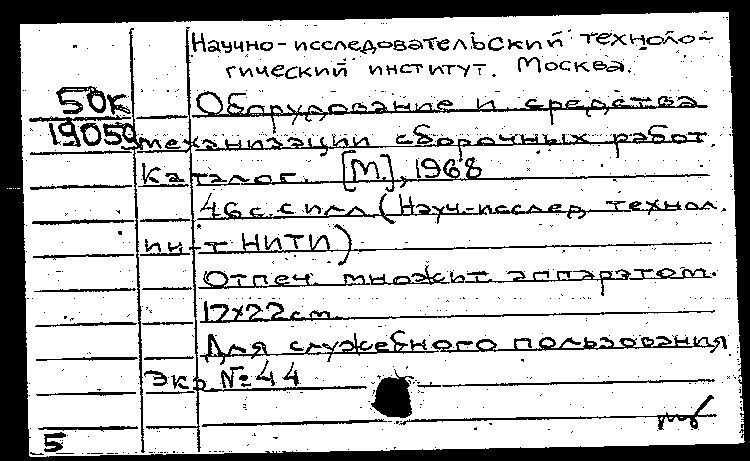 Научно-исследовательский техноло-
гический институт. Москва.
50к Оборудование и средства
19059 механизации сборочных работ.
Каталог. [М.], 1968
46 с. с илл. (Науч.-исслед. технол.
ин-т НИТИ)
Отпеч. множит. аппаратом.
17x22см.
Для служебного пользования
Экз. № 44
5